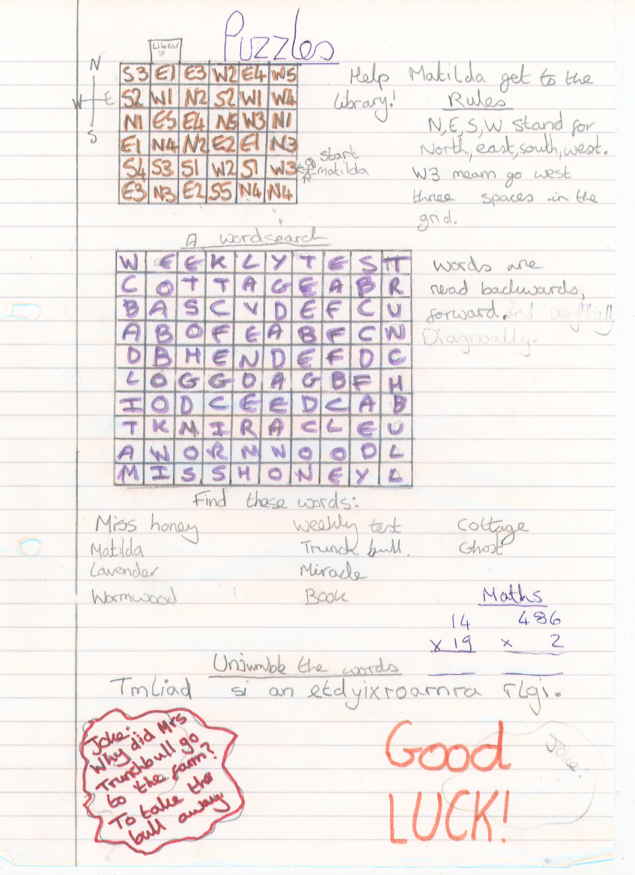 Puzzles
Library
N
W E
S
S3 E1 E3 W2 E4 W5
S2 W1 N2 S2 W1 W4
N1 E5 E4 N5 W3 N1
E1 N4 N2 E2 E1 N3
S4 S3 S1 W2 S1 W3
E3 N3 E2 S5 N4 N4
start
matilda
Help Matilda get to the
library!
Rules
N,E,S,W stand for
North, east, south, west.
W3 mearn go west
three spaces in the
grid.
A wordsearch
W E E K L Y T E S T
C O T T A G E A B R
B A S C V D E F C U
A B O F E A B F C W
D B H E N D E F D C
L O G G D A G B F H
I O D C E E D C A B
T K M I R A C L E U
A W O R M W O O D L
M I S S H O N E Y L
Words are
read backwards,
forward, and
Diagonally.
Find these words:
Miss honey Weekly test Cottage
Matilda Trunch bull. Ghost
Lavender Miracle
Wormwood Book
Maths
14 486
x 19 x 2
Unjumble the words
Tmliad si an etdyixroarnra rlgi.
Joke:
Why did Mrs
Trunchbull go
to the farm?
To take the
bull away
Good
LUCK!
Joke: